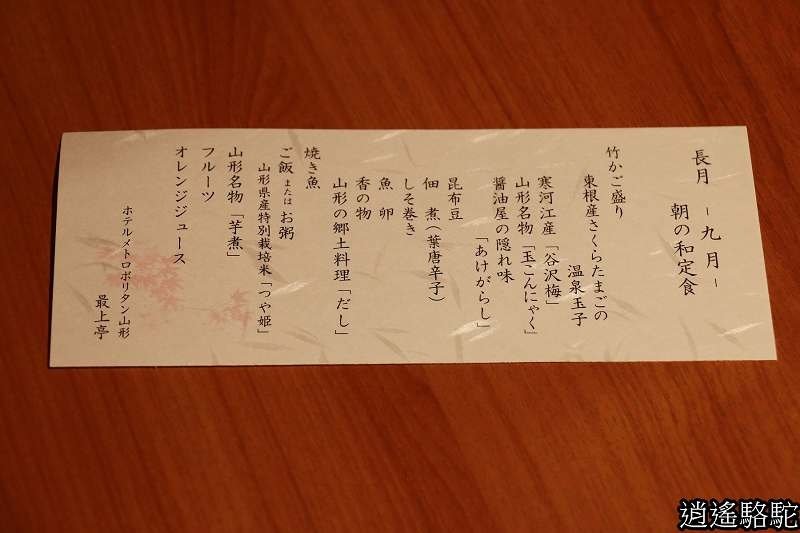 長月 －九月－
朝の和定食
竹かご盛り
東根産さくらたまごの
温泉玉子
寒河江産「谷沢梅」
山形名物「玉こんにゃく」
醤油屋の隠れ味
「あけがらし」
昆布豆
佃 煮（葉唐辛子）
しそ巻き
魚 卵
香の物
山形の郷土料理「だし」
焼き魚
ご飯 または お粥
山形県産特別栽培米「つや姫」
山形名物「芋煮」
フルーツ
オレンジジュース
ホテルメトロポリタン山形
最上亭
逍遙駱駝